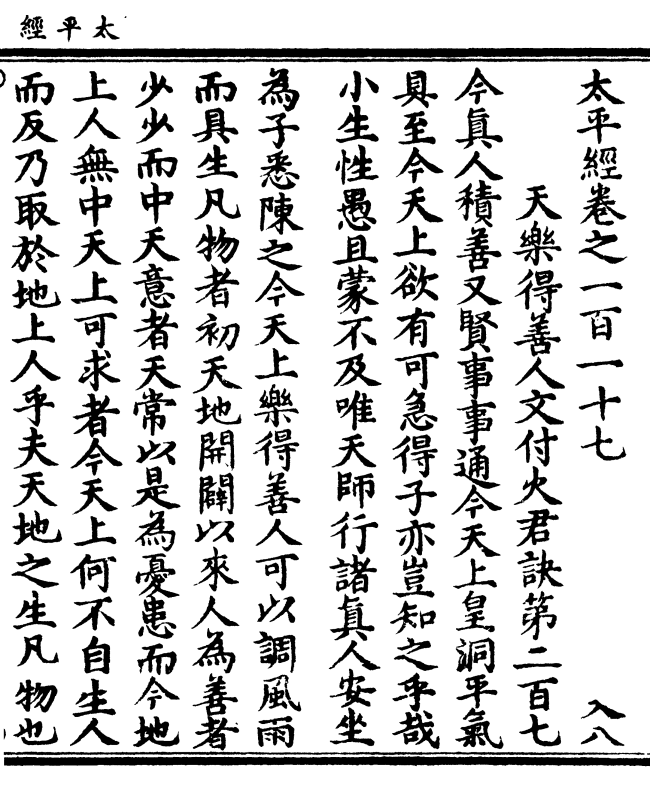 太平經
太平經卷之一百一十七 入八
天樂得善人文付火君訣第二百七
今眞人積善又賢事事通今天上皇洞平氣
具至今天上欲有可急得子亦豈知之乎哉
小生性愚且蒙不及唯天師行諸眞人安坐
為子悉陳之今天上樂得善人可以調風雨
而具生凡物者初天地開闢以來人為善者
少少而中天意者天常以是為憂患而今地
上人無中天上可求者今天上何不自生人
而反乃取於地上人乎夫天地之生凡物也